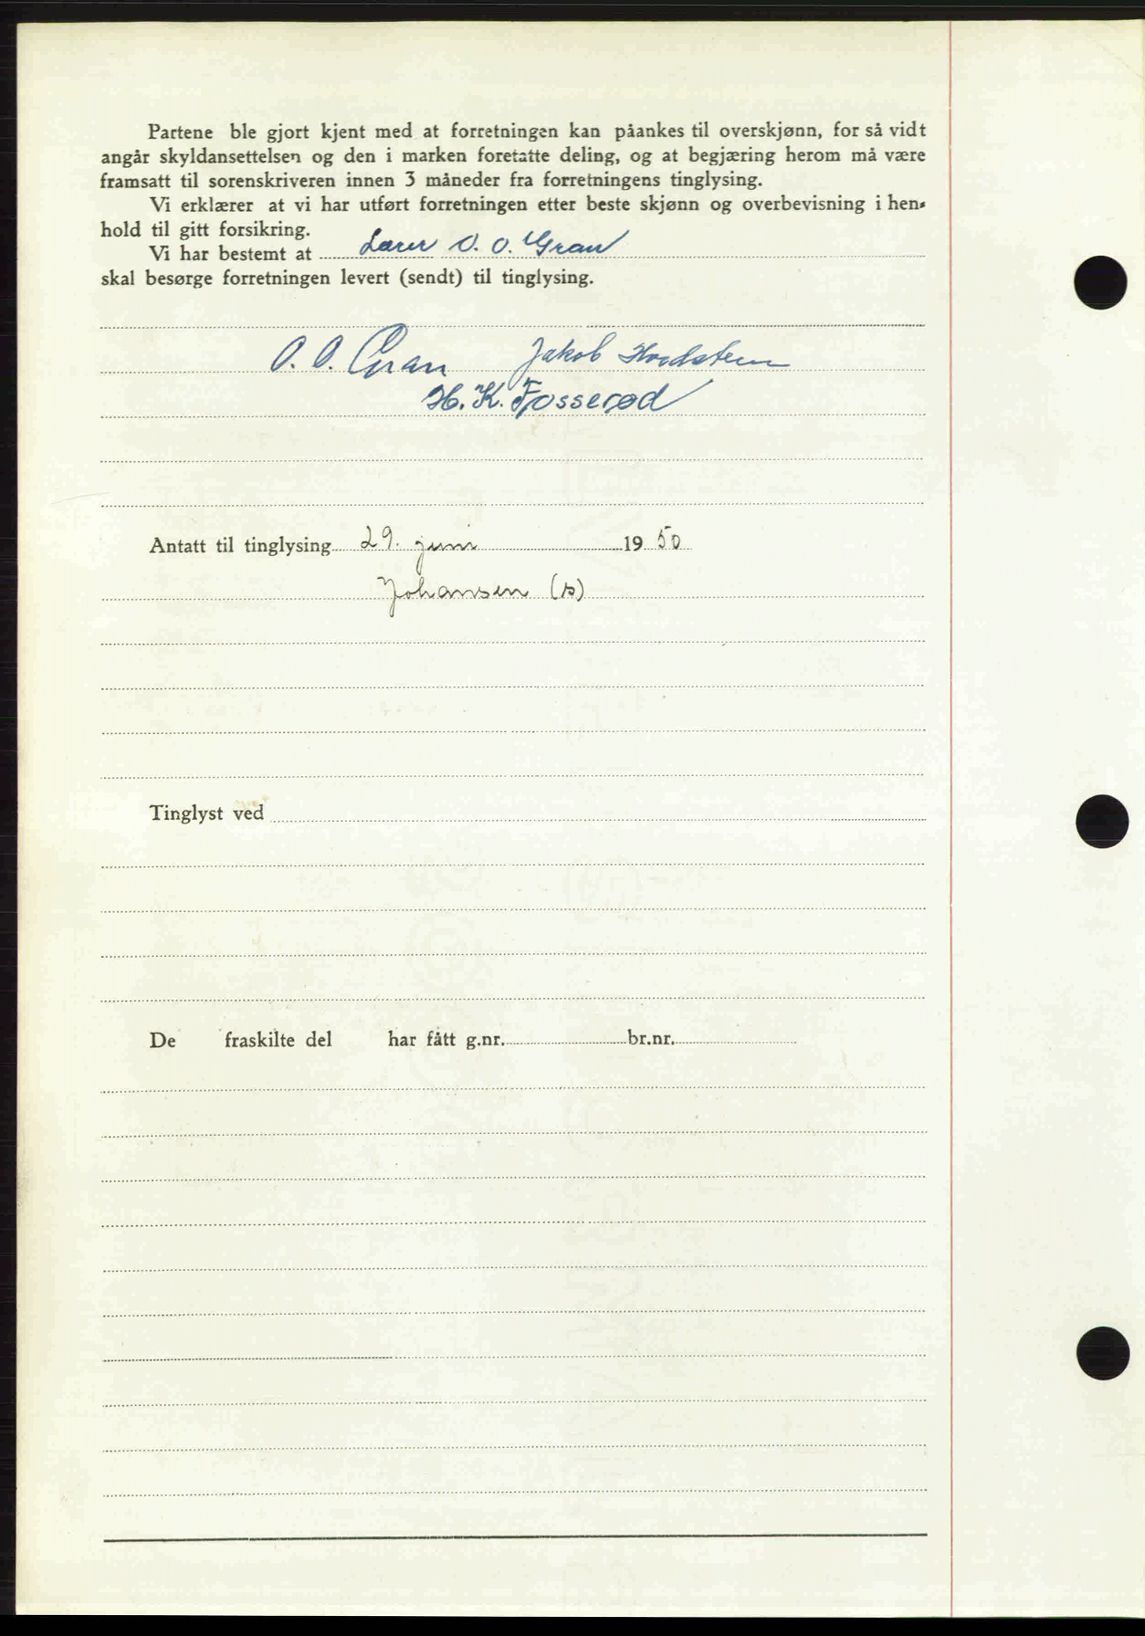 Partene ble gjort kjent med at forretningen kan påankes til overskjønn, for så vidt
angår skyldansettelsen og den i marken foretatte deling, og at begjæring herom må være
framsatt til sorenskriveren innen 3 måneder fra forretningens tinglysing.
Vi erklærer at vi har utført forretningen etter beste skjønn og overbevisning i hen-
hold til gitt forsikring.
Vi har bestemt at Lærer O. O. Gran
skal besørge forretningen levert (sendt) til tinglysing.
O. O. Gran Jakob
H. K. Fosserød
Antatt til tinglysing 29. juni 1950
Johansen (s)
Tinglyst ved
De fraskilte del har fått g.nr. br.nr.